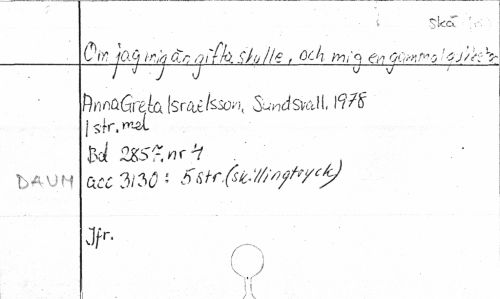 skä
Om jag mig än gifta skulle, och mig en gammal
Anna Greta Israelsson, Sundsvall, 1978
1 str. mel
Bd 2857. nr 4
DAUM acc 3130: 5 str. (skillingtryck)
Jfr.